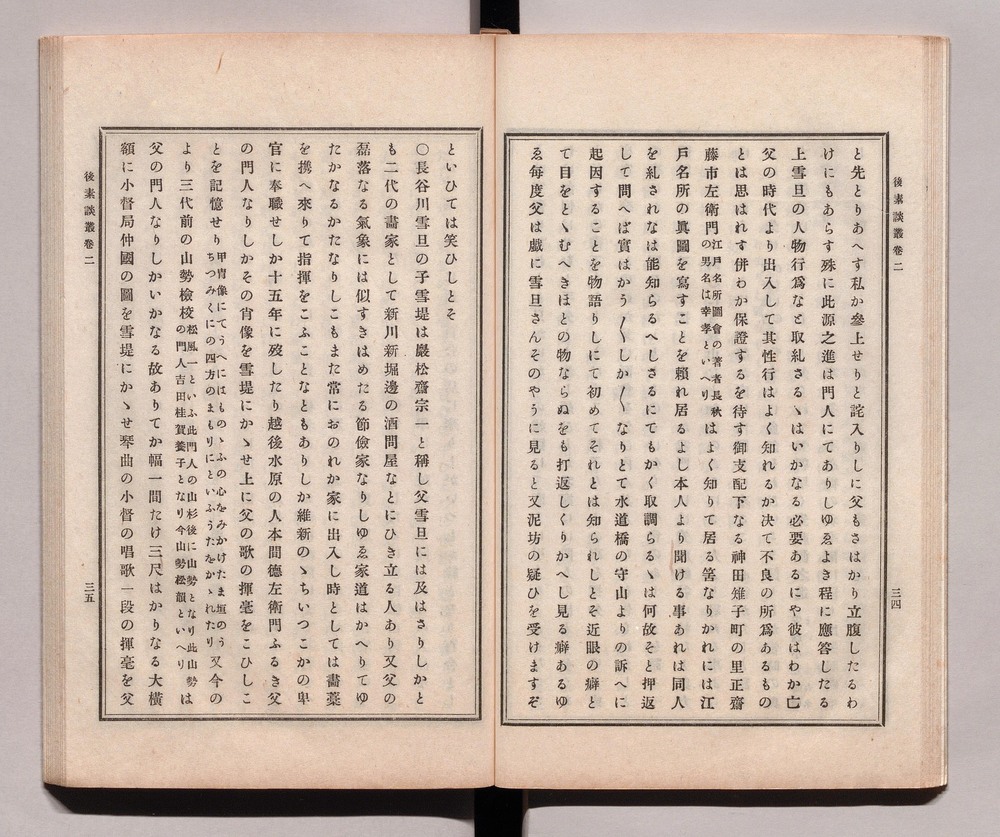 後素談叢卷二
三四
と先とりあへす私か參上せりと詫入りしに父もさはかり立腹したるわ
けにもあらす殊に此源之進は門人にてありしゆゑよき程に應答したる
上雪旦の人物行爲なと取糺さるゝはいかなる必要あるにや彼はわか亡
父の時代より出入して其性行はよく知れるか决て不良の所爲あるもの
とは思はれす併わか保證するを待す御支配下なる神田雉子町の里正齋
藤市左衛門江戸名所圖會の著者長秋の男名は幸孝といへりはよく知りて居る筈なりかれには江
戸名所の眞圖を寫すことを賴れ居るよし本人より聞ける事あれは同人
を糺されなは能知らるへしさるにてもかく取調らるゝは何故そと押返
して問へは實はかう〳〵しか〳〵なりとて水道橋の守山よりの訴へに
起因することを物語りしにて初めてそれとは知られしとそ近眼の癖と
て目をとゝむへきほとの物ならぬをも打返しくりかへし見る癖あるゆ
ゑ每度父は戯に雪旦さんそのやうに見ると又泥坊の疑ひを受けますぞ
といひては笑ひしとそ
〇長谷川雪旦の子雪堤は嚴松齋宗一と稱し父雪旦には及はさりしかと
も二代の畵家として新川新堀邊の酒問屋なとにひき立る人あり又父の
磊落なる氣象には似すきはめたる節儉家なりしゆゑ家道はかへりてゆ
たかなるかたなりしこもまた常におのれか家に出入し時としては畵藁
を携へ來りて指揮をこふことなともありしか維新のゝちいつこかの卑
官に奉職せしか十五年に歿したり越後水原の人本間德左衛門ふるき父
の門人なりしかその肖像を雪堤にかゝせ上に父の歌の揮毫をこひしこ
とを記憶せり甲冑像にてうへにはものゝふの心をみかけたま垣のうちつみくにの四方のまもりにといふうたをかゝれたり又今の
より三代前の山勢檢校松風一といふ此門人の山杉後に山勢となり此山勢の門人吉田桂賀養子となり今山勢松韻といへりは
父の門人なりしかいかなる故ありてか幅一間たけ三尺はかりなる大橫
額に小督局仲國の圖を雪堤にかゝせ琴曲の小督の唱歌一段の揮毫を父
後素談叢卷二
三五